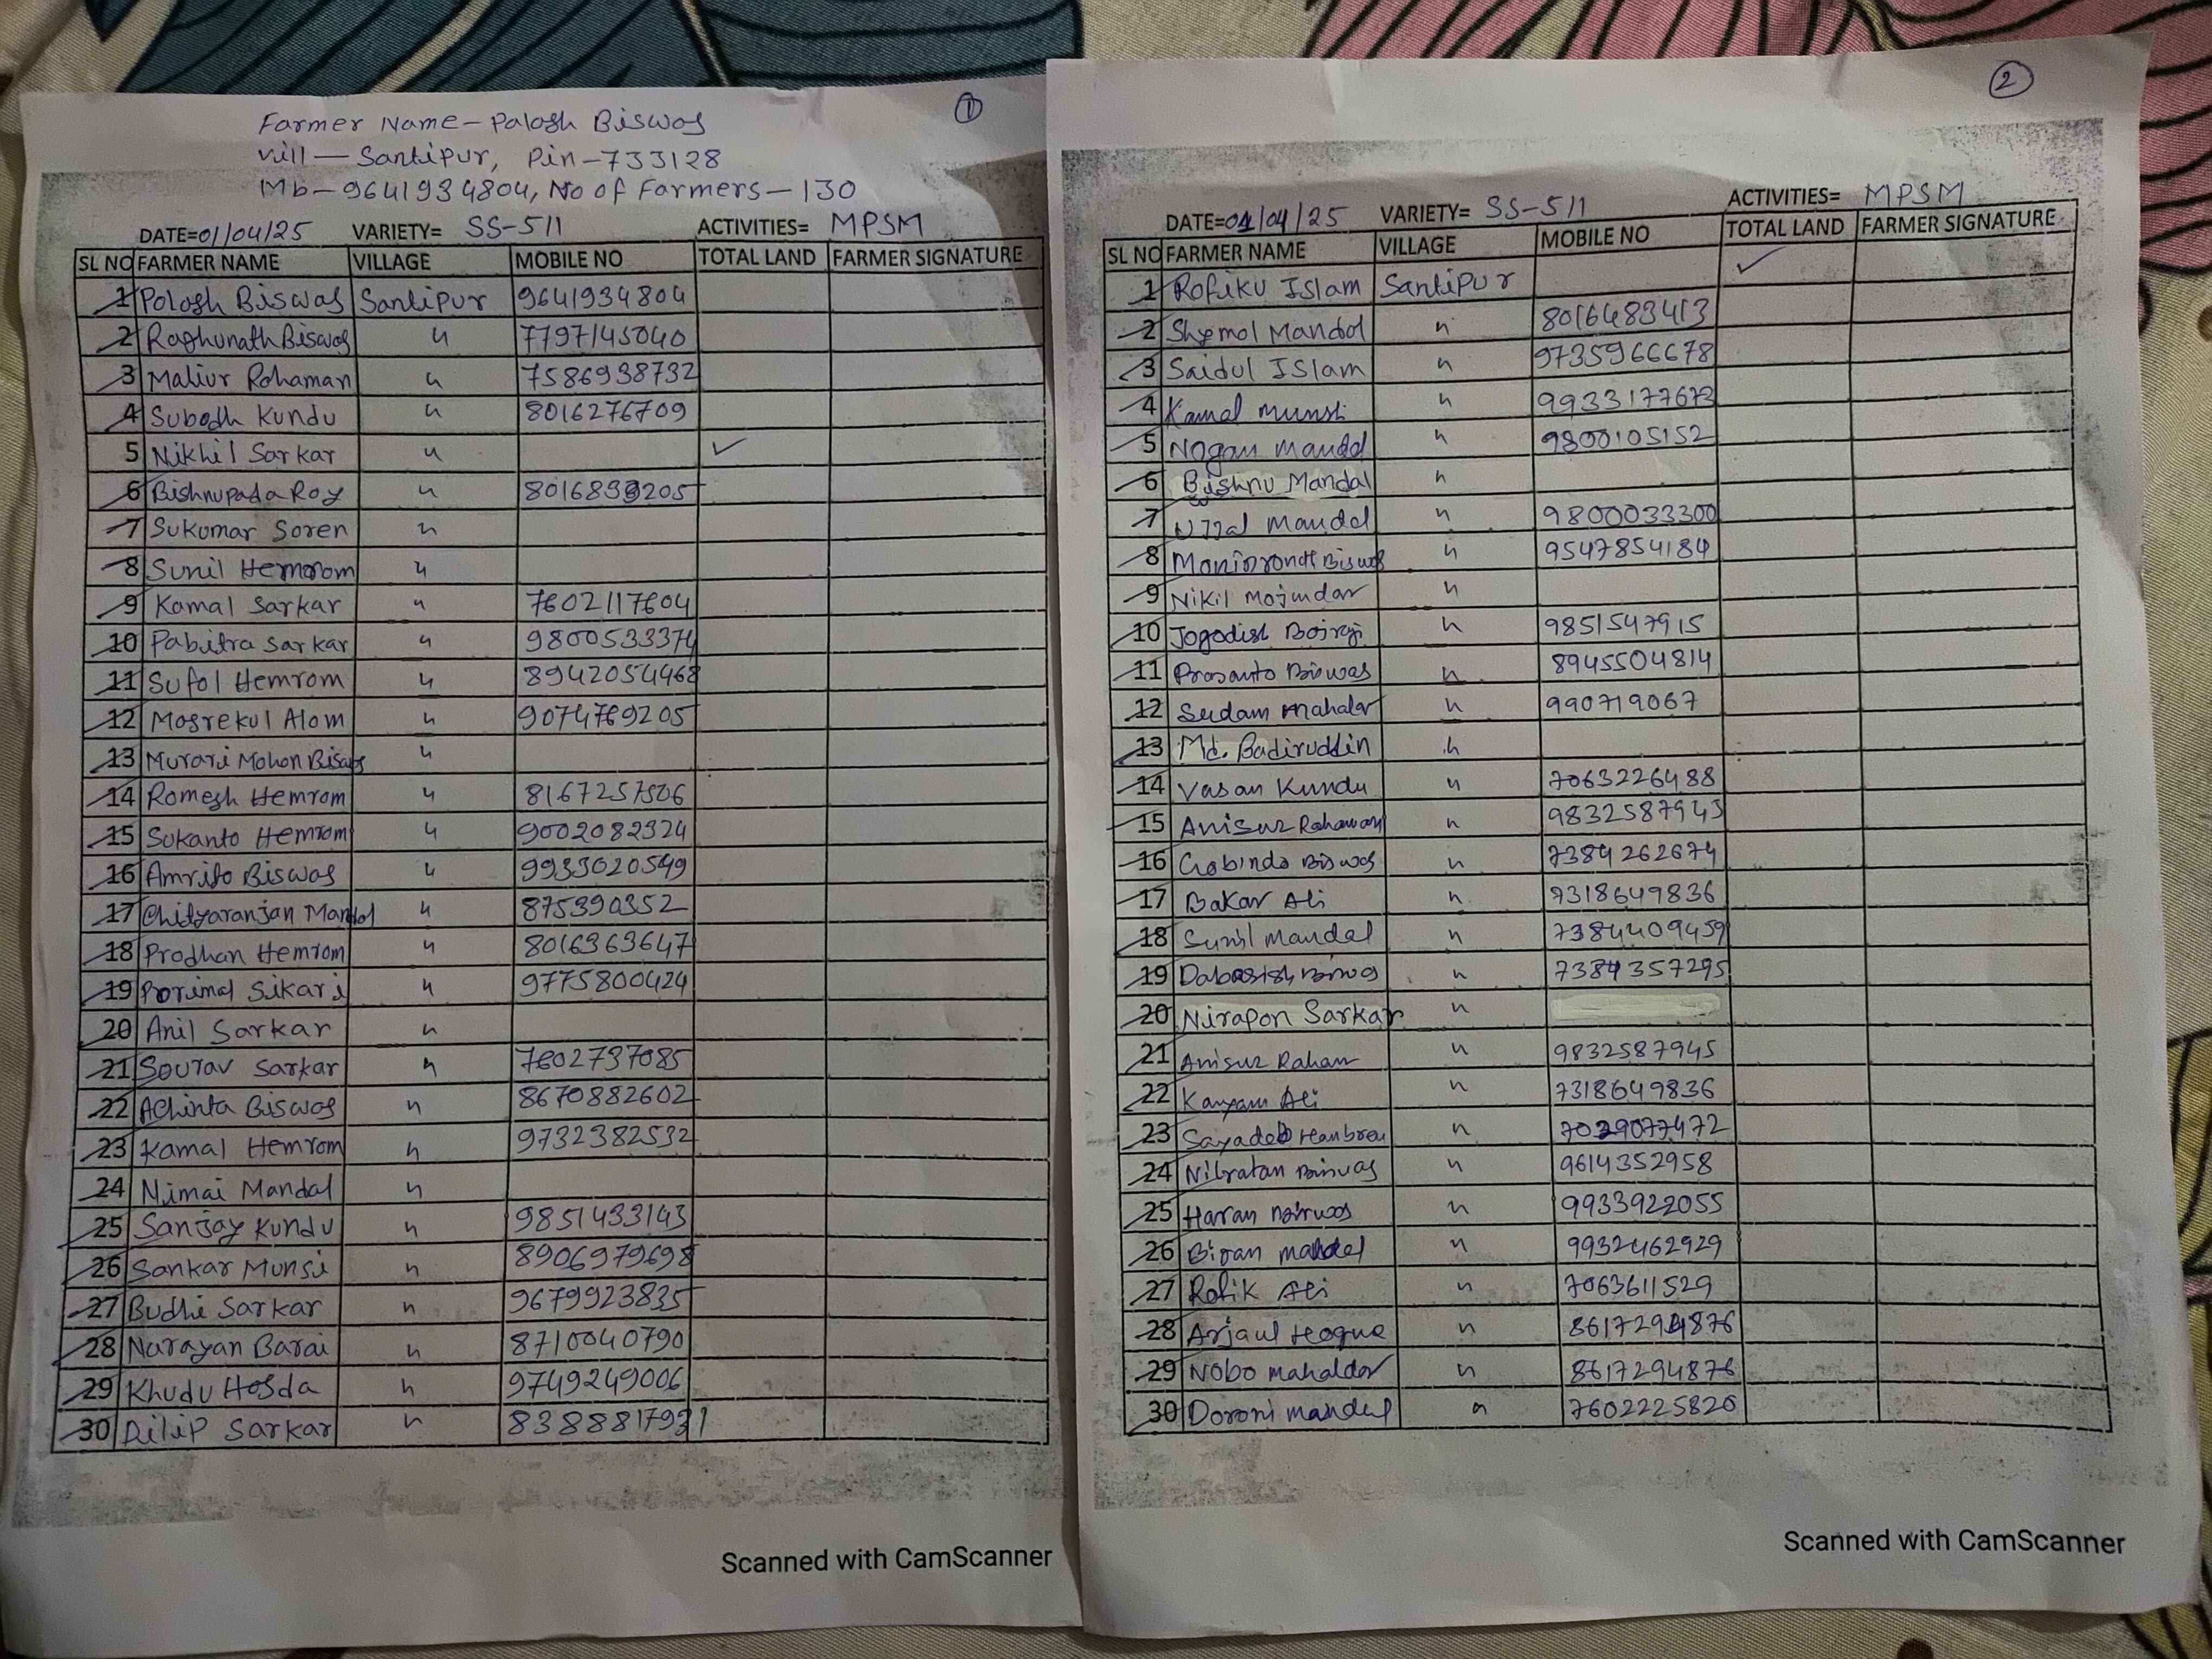 ①
Farmer Name-Palosh Biswas
Vill-Santipur, Pin-733128
Mb-9641934804, No of Farmers-130
DATE=01/04/25 VARIETY= SS-511 ACTIVITIES= MPSM
SL NO FARMER NAME VILLAGE MOBILE NO TOTAL LAND FARMER SIGNATURE
1 Polosh Biswas Santipur 9641934804
2 Raghunath Biswas " 7797145040
3 Maliur Rohaman " 7586938732
4 Subodh Kundu " 8016276709
5 Nikhil Sarkar " ✓
6 Bishnupada Roy "
7 Sukumar Soren "
8 Sunil Hemrom "
9 Kamal Sarkar " 7602117604
10 Pabitra Sarkar " 9800533374
11 Sufol Hemrom " 8942054468
12 Mosrekul Alom " 9074769205
13 Murari Mohon Biswas "
14 Romesh Hemrom " 8167257506
15 Sokanto Hemrom " 9002082324
16 Amrito Biswas " 9933020549
17 Chityaranjan Mandol " 875390352
18 Prodhan Hemrom " 8016363647
19 Porimol Sikari " 9775800424
20 Anil Sarkar "
21 Sourav Sarkar " 7602737085
22 Achinta Biswas " 8670882602
23 Kamal Hemrom " 9732382532
24 Nimai Mandal "
25 Sanjay Kundu " 9851433143
26 Sankar Munsi " 8906979698
27 Budhi Sarkar " 9679923835
28 Narayan Barai " 8710040790
29 Khudu Hosda " 9749249006
30 Dilip Sarkar "
Scanned with CamScanner
②
DATE=01/04/25 VARIETY= SS-511 ACTIVITIES= MPSM
SL NO FARMER NAME VILLAGE MOBILE NO TOTAL LAND FARMER SIGNATURE
1 Rofiku Islam Santipur ✓
2 Shemol Mandol " 8016483413
3 Saidul Islam " 9735966678
4 Kamal Munsi "
5 Nogan Mandal " 9800105152
6 Bishnu Mandal "
7 Ujjal Mandal " 9800033300
8 Biswas " 9547854184
9 Nikil Mojumdar "
10 Jogodish Boiragi " 9851547915
11 Prosanto Biswas " 8945504814
12 Sudam Mahalar " 990719067
13 Md. Badiruddin "
14 Vasan Kundu " 7063226488
15 Anisur Rahaman " 9832587945
16 Gobindo Biswas " 7384262674
17 Bakar Ali " 7318649836
18 Sunil Mandal " 7384409459
19 Dabasish Biswas " 7384357295
20 Nirapon Sarkar "
21 Anisur Rahan " 9832587945
22 Kayam Ali " 7318649836
23 " 7029077472
24 Nilratan Biswas " 9614352958
25 Haran Biswas " 9933922055
26 Mandal " 9932462929
27 Rofik Ali " 7063611529
28 Arjaul Hoque " 8617294876
29 Nobo Mahaldar " 8617294876
30 Doroni Mandal " 7602225820
Scanned with CamScanner